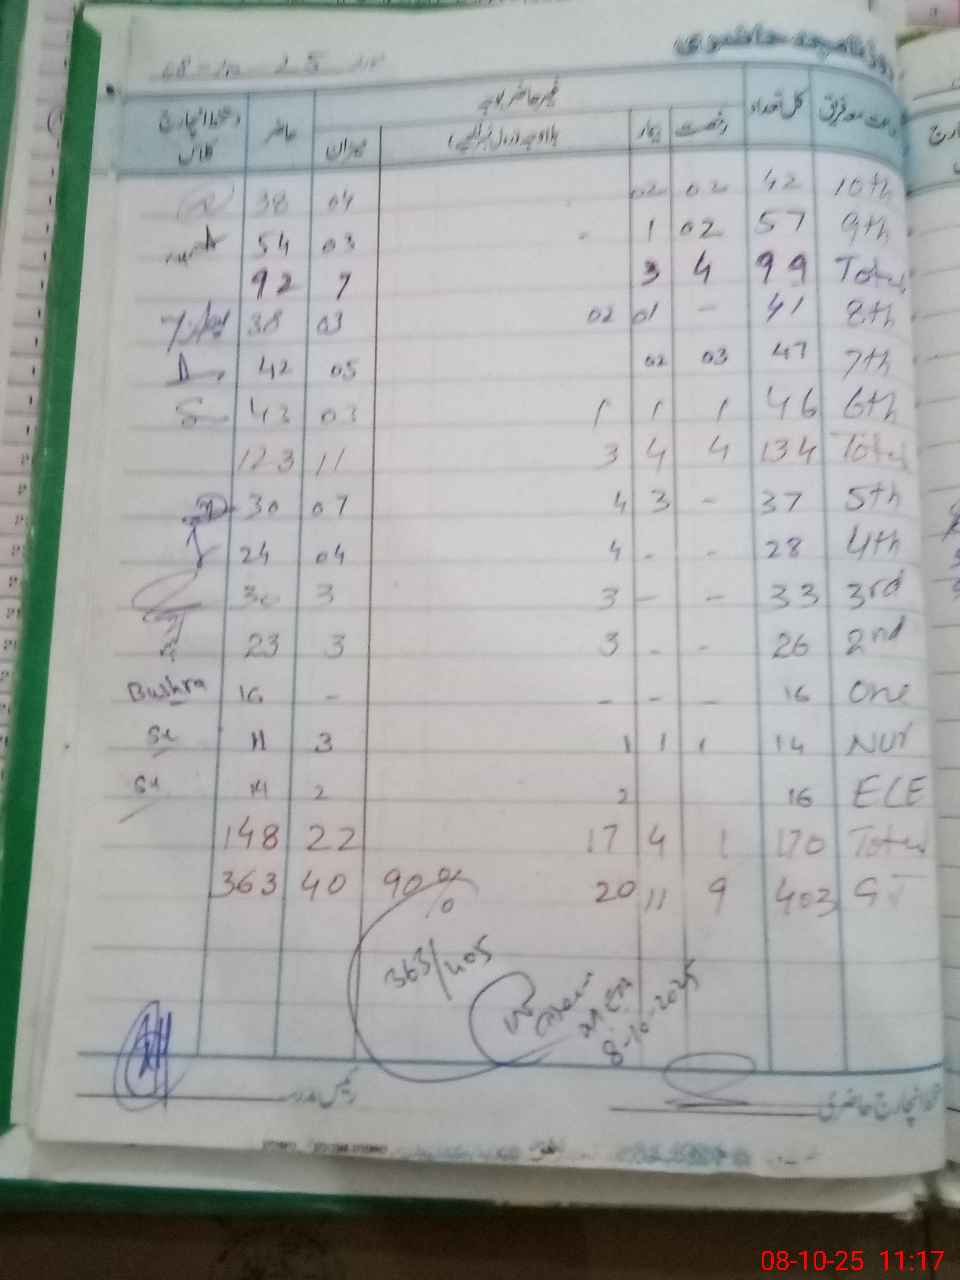 روزنامچہ حاضری
جماعت معہ فریق کل تعداد غیر حاضر طلبہ حاضر دستخط انچارج کلاس
رخصت بیمار بلاوجہ میزان
10th 42 02 02 04 38
9th 57 02 1 - 03 54
Total 99 4 3 7 92
8th 41 - 01 02 03 38
7th 47 03 02 05 42
6th 46 1 1 1 03 43
Total 134 4 4 3 11 123
5th 37 - 3 4 07 30
4th 28 - - 4 04 24
3rd 33 - - 3 3 30
2nd 26 - - 3 3 23
One 16 - - - - 16 Bushra
Nur 14 1 1 1 3 11
ECE 16 2 2 14
Total 170 1 4 17 22 148
GT 403 9 11 20 90% 40 363
363/405
8-10-2025
انچارج حاضری
رئیس مدرسہ
08-10-25 11:17